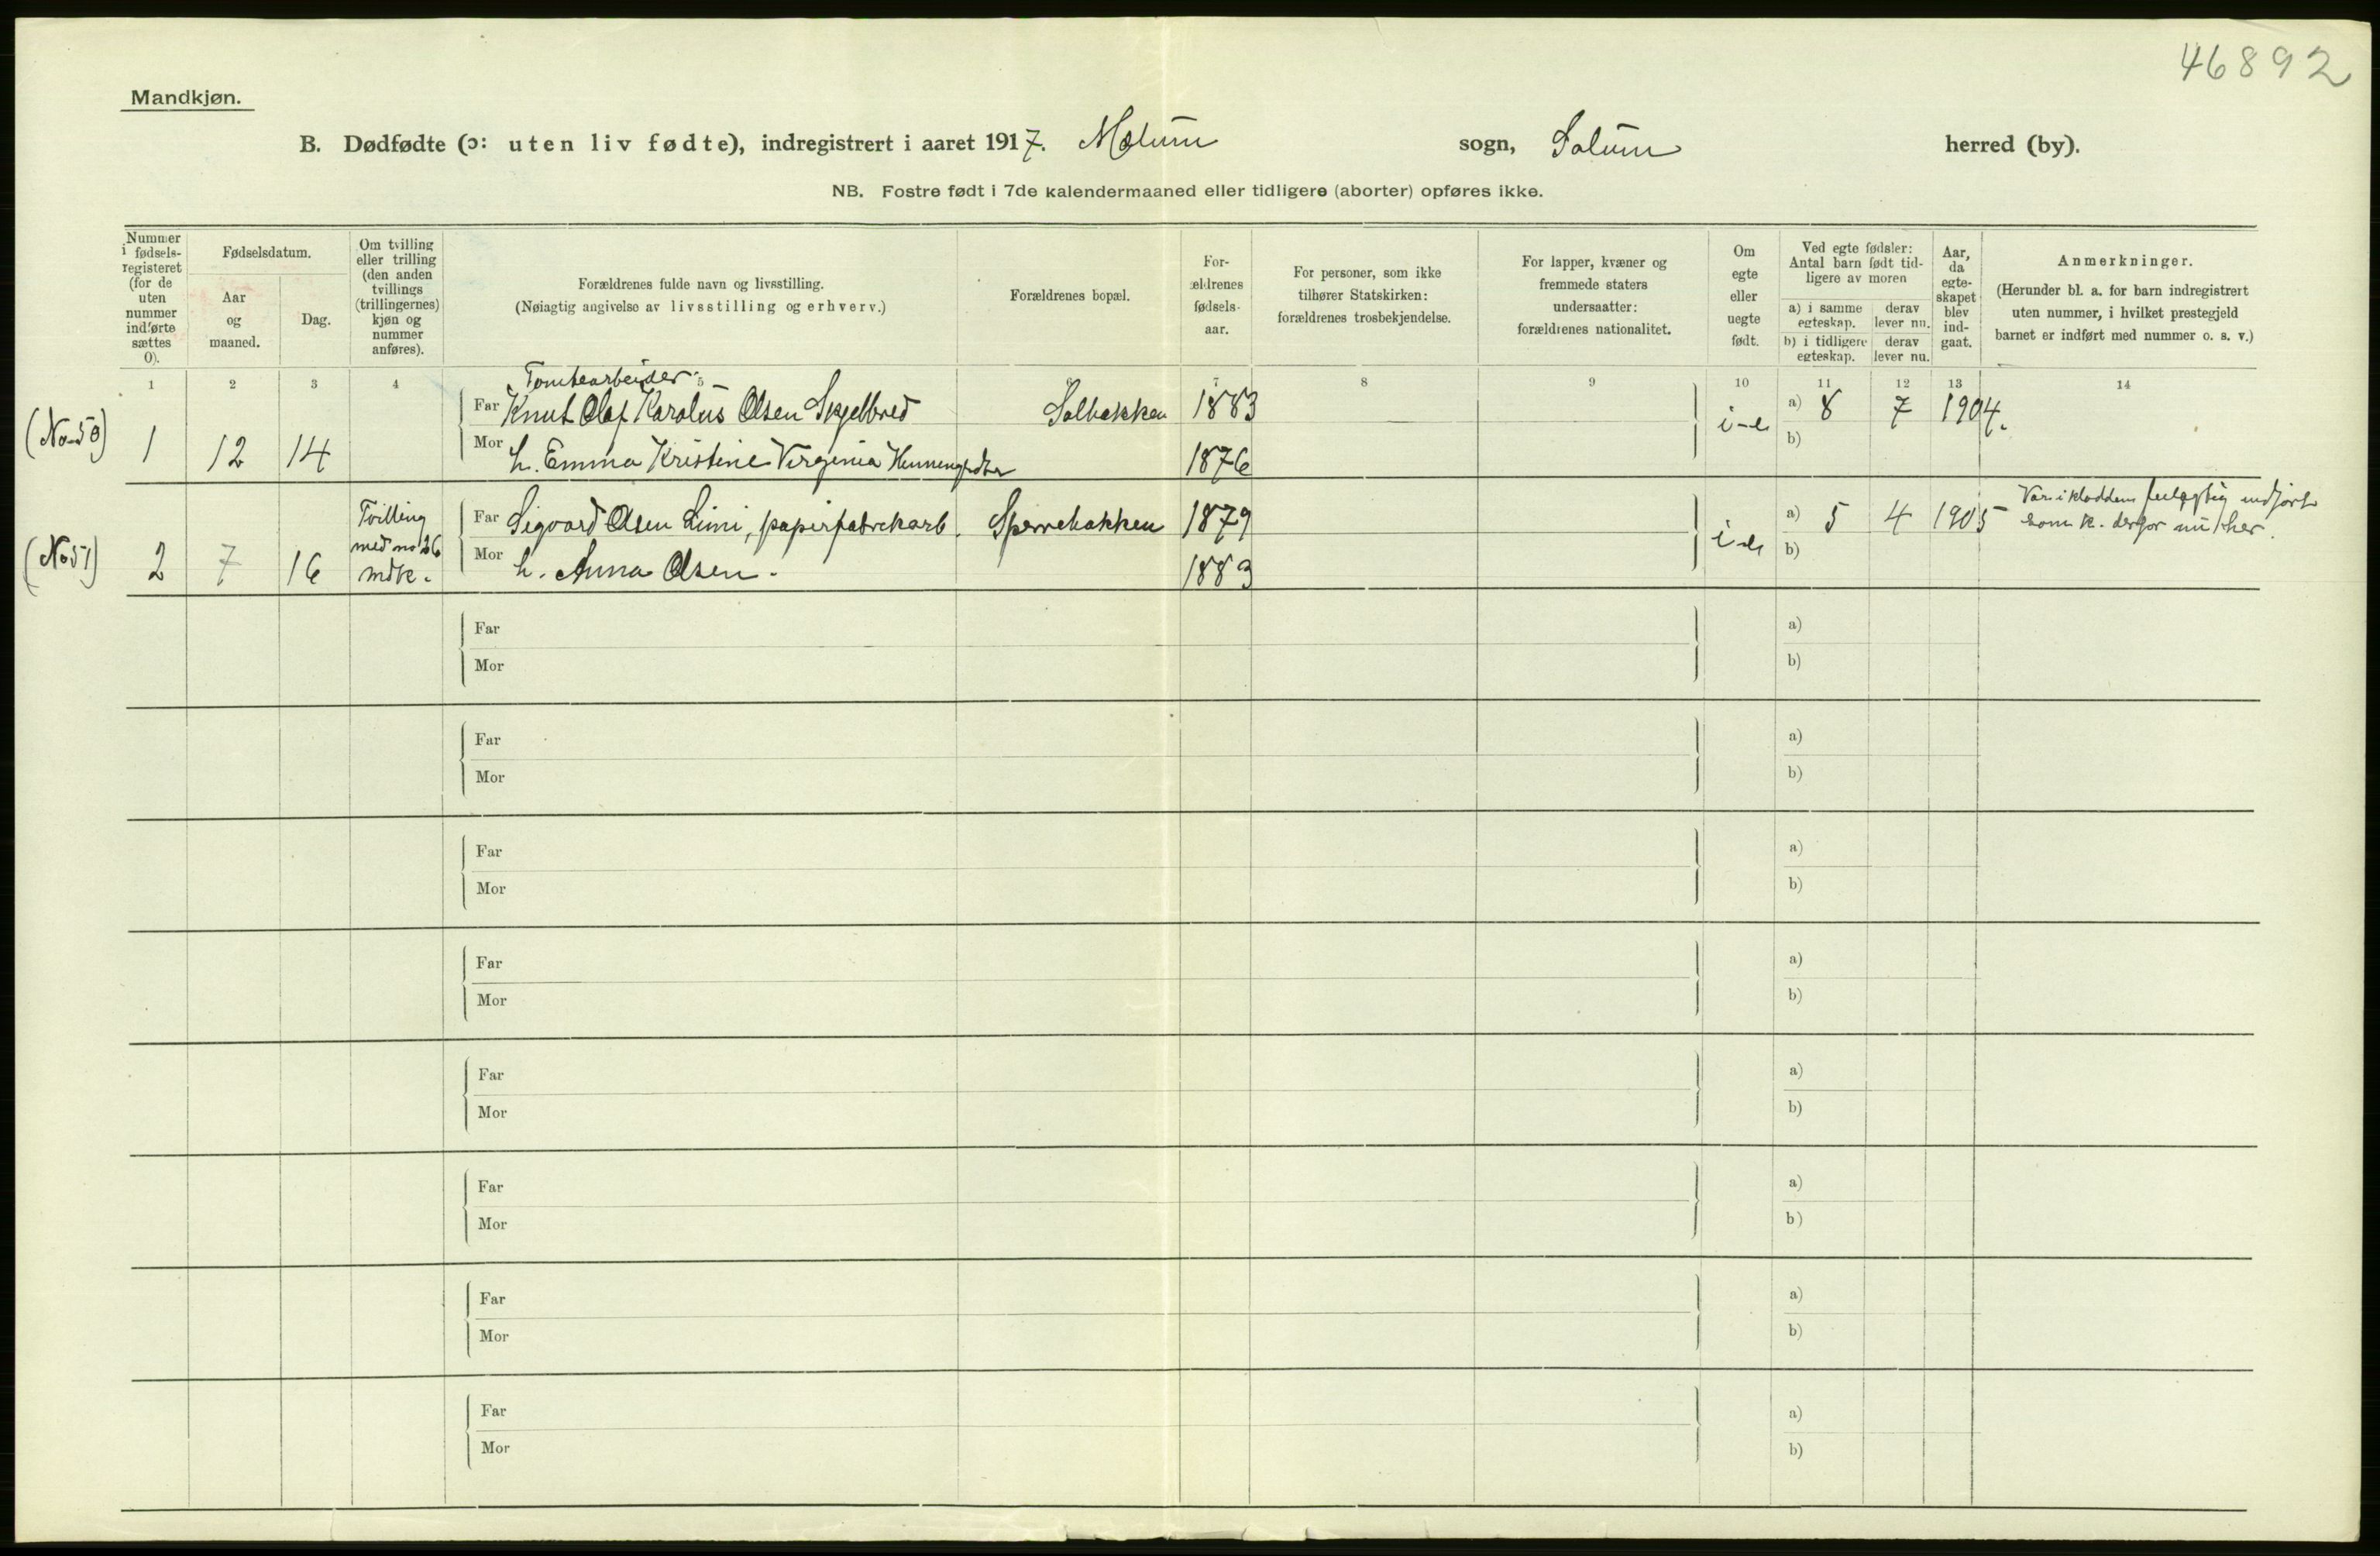 46892
Mandkjøn.
B. Dødfødte (ɔ: uten liv fødte), indregistrert i aaret 1917. Mælum sogn, Solum herred (by).
NB. Fostre født i 7de kalendermaaned eller tidligere (aborter) opføres ikke.
Nummer
i fødsels-
registeret
(for de
uten
nummer
indførte
sættes
0).
Fødselsdatum.
Aar
og
maaned.
Dag.
Om tvilling
eller trilling
(den anden
tvillings
(trillingernes)
kjøn og
nummer
anføres).
Forældrenes fulde navn og livsstilling.
(Nøiagtig angivelse av livsstilling og erhverv.)
Forældrenes bopæl.
For-
ældrenes
fødsels-
aar.
For personer, som ikke
tilhører Statskirken:
forældrenes trosbekjendelse.
For lapper, kvæner og
fremmede staters
undersaatter:
forældrenes nationalitet.
Om
egte
eller
uegte
født.
Ved egte fødsler:
Antal barn født tid-
ligere av moren
a) i samme
egteskap.
derav
lever nu.
b) i tidligere
egteskap.
derav
lever nu.
Aar,
da
egte-
skapet
blev
ind-
gaat.
Anmerkninger.
(Herunder bl. a. for barn indregistrert
uten nummer, i hvilket prestegjeld
barnet er indført med nummer o. s. v.)
1 2 3 4 5 6 7 8 9 10 11 12 13 14
Tomtearbeider
(No 50) 1 12 14
Far Knut Olaf Karolus Olsen Skjelbred Solbakken 1883 i-e a) 8 7 1904.
Mor h. Emma Kristine Virginia 1876 b)
(No 51) 2 7 16
Tvilling
med no 26
mdk.
Far Sigvard Olsen Limi, papirfabrikarb. Sperrebakken 1879 i-e a) 5 4 1905
Mor h. Anna Olsen. 1883 b)
Var i kladden feilagtig indført
som k. derfor nu her.
Far a)
Mor b)
Far a)
Mor b)
Far a)
Mor b)
Far a)
Mor b)
Far a)
Mor b)
Far a)
Mor b)
Far a)
Mor b)
Far a)
Mor b)